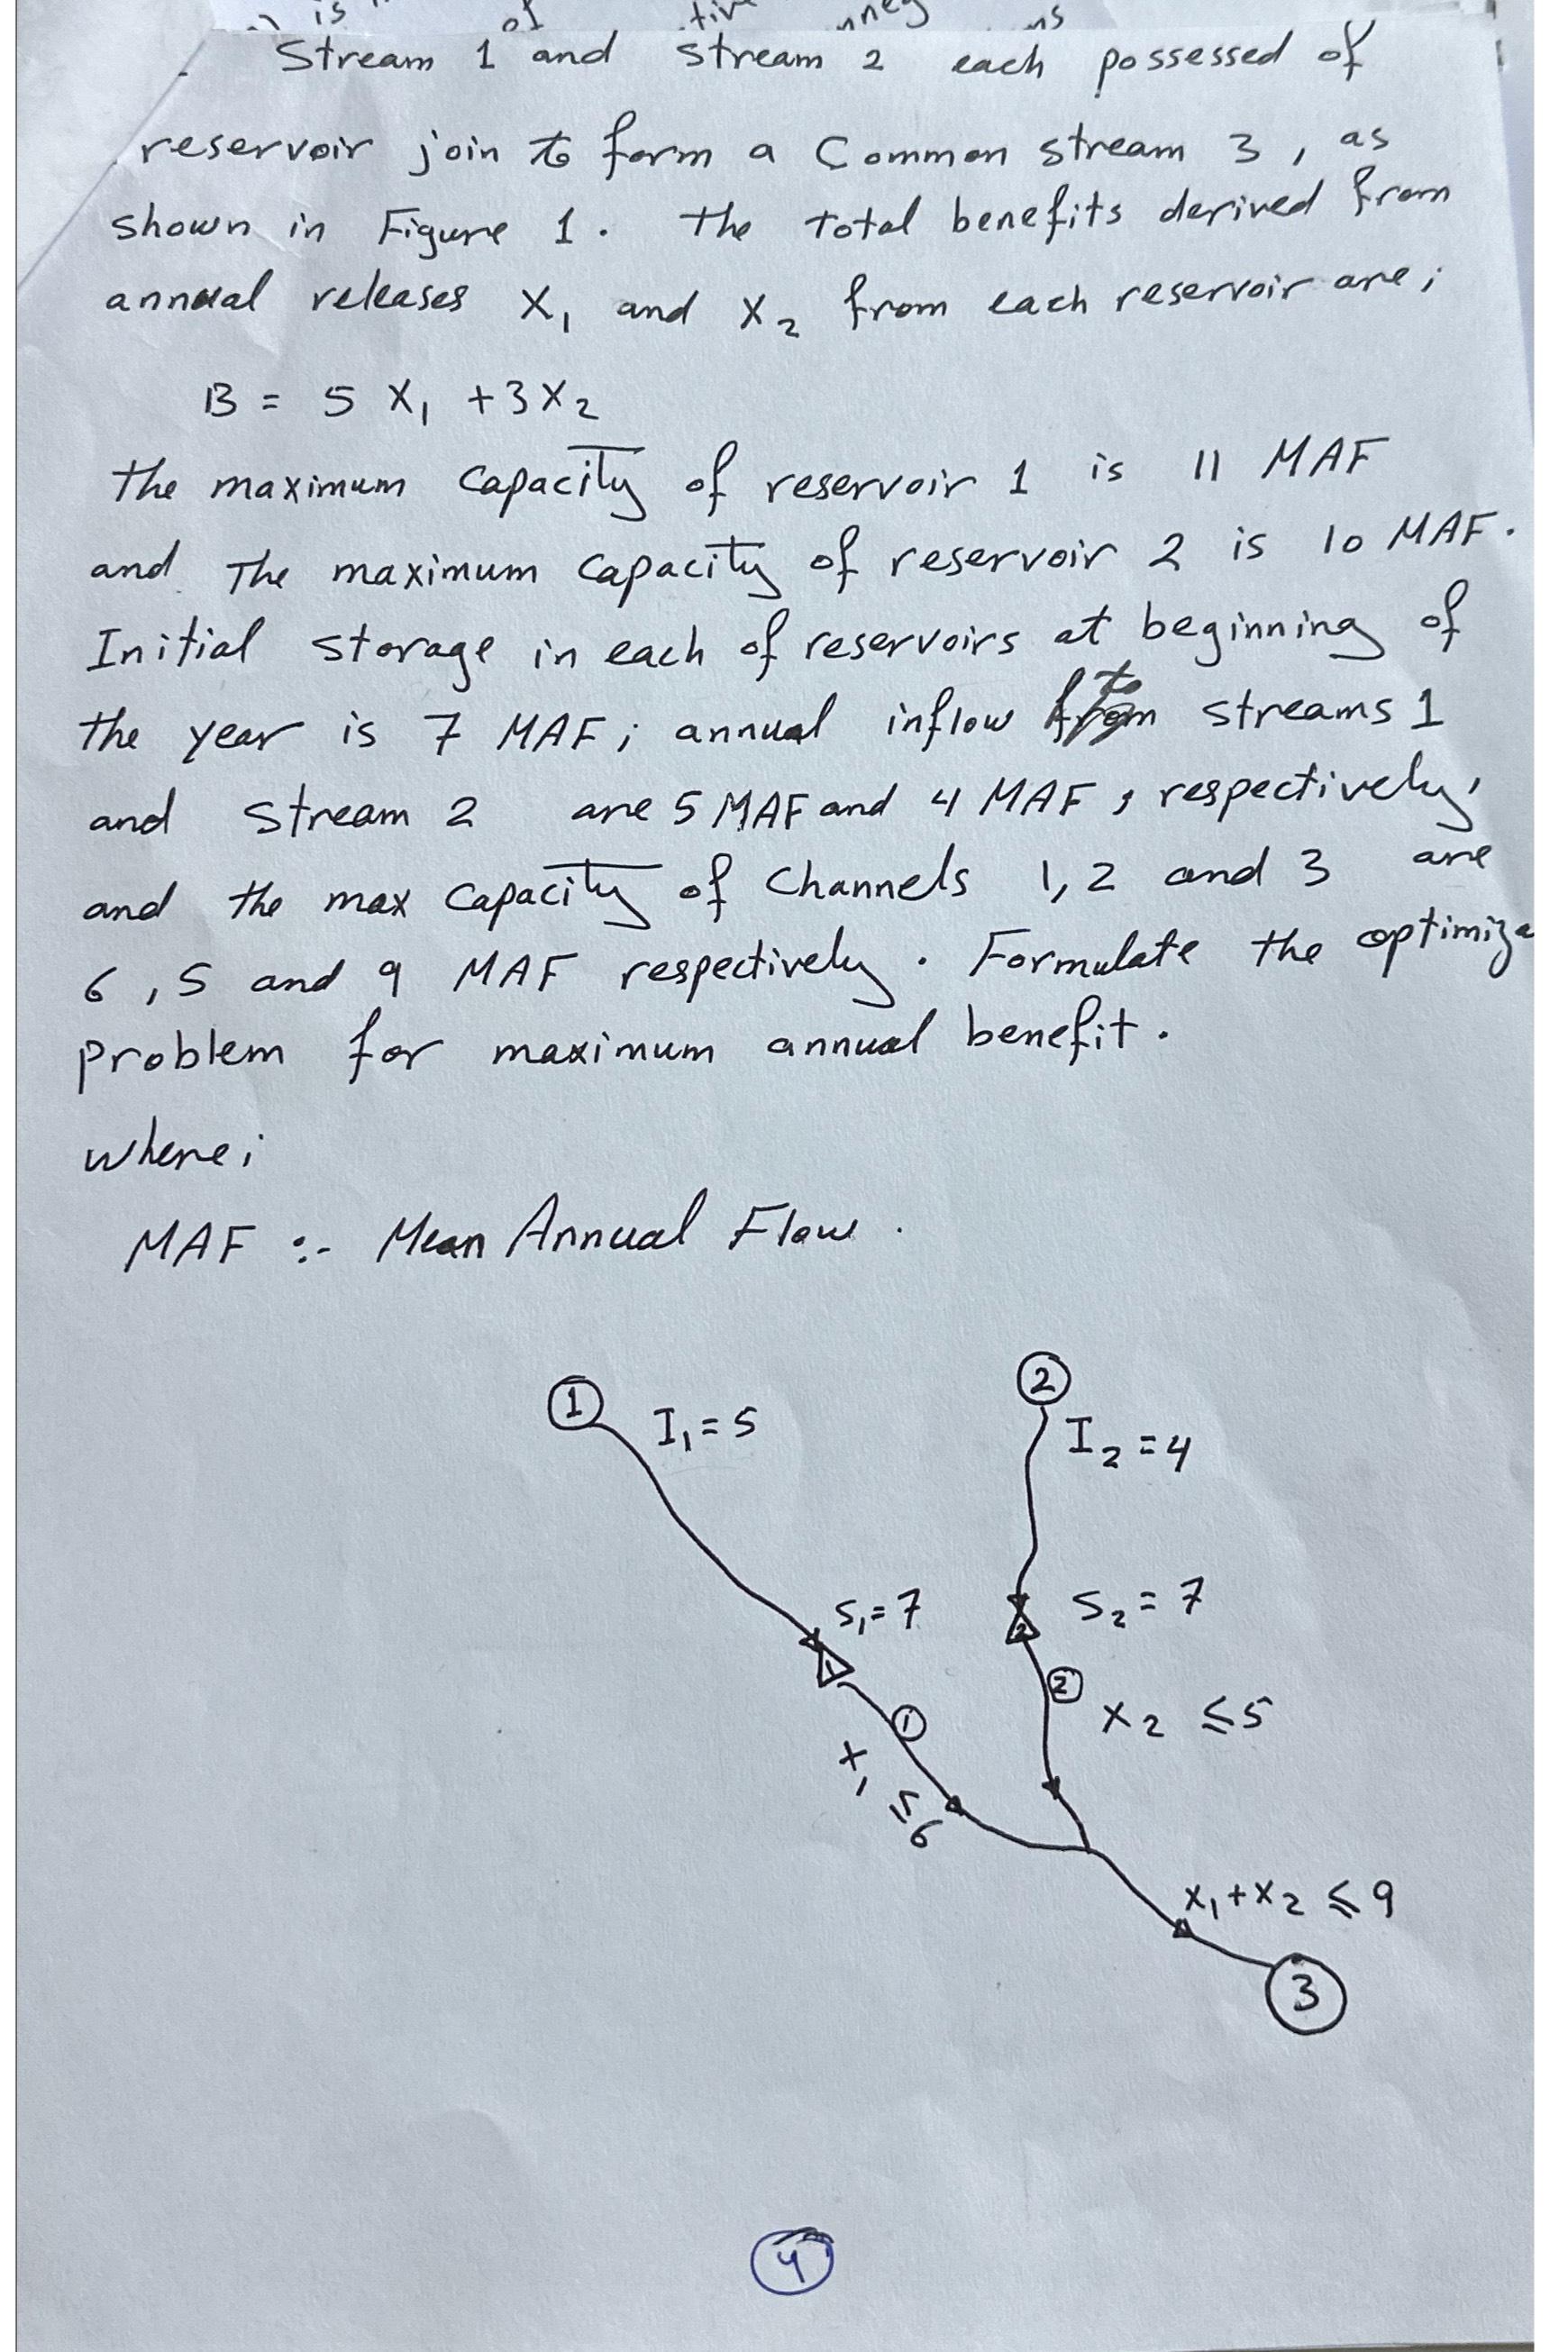 is of
Stream 1 and stream 2 each possessed of
reservoir join to form a Common stream 3, as
shown in Figure 1. The total benefits derived from
annual releases X₁ and X₂ from each reservoir are;
B = 5 X₁ + 3X₂
The maximum capacity of reservoir 1 is 11 MAF
and The maximum capacity of reservoir 2 is 10 MAF.
Initial storage in each of reservoirs at beginning of
the year is 7 MAF; annual inflow to streams 1
and stream 2 are 5 MAF and 4 MAF, respectively,
and the max capacity of channels 1, 2 and 3 are
6, 5 and 9 MAF respectively. Formulate the optimiza
problem for maximum annual benefit.
where;
MAF :- Mean Annual Flow.
1 I₁ = 5
2 I₂ = 4
S₁ = 7
1
S₂ = 7
2
1
X₁ ≤ 6
2
X₂ ≤ 5
X₁ + X₂ ≤ 9
3
4